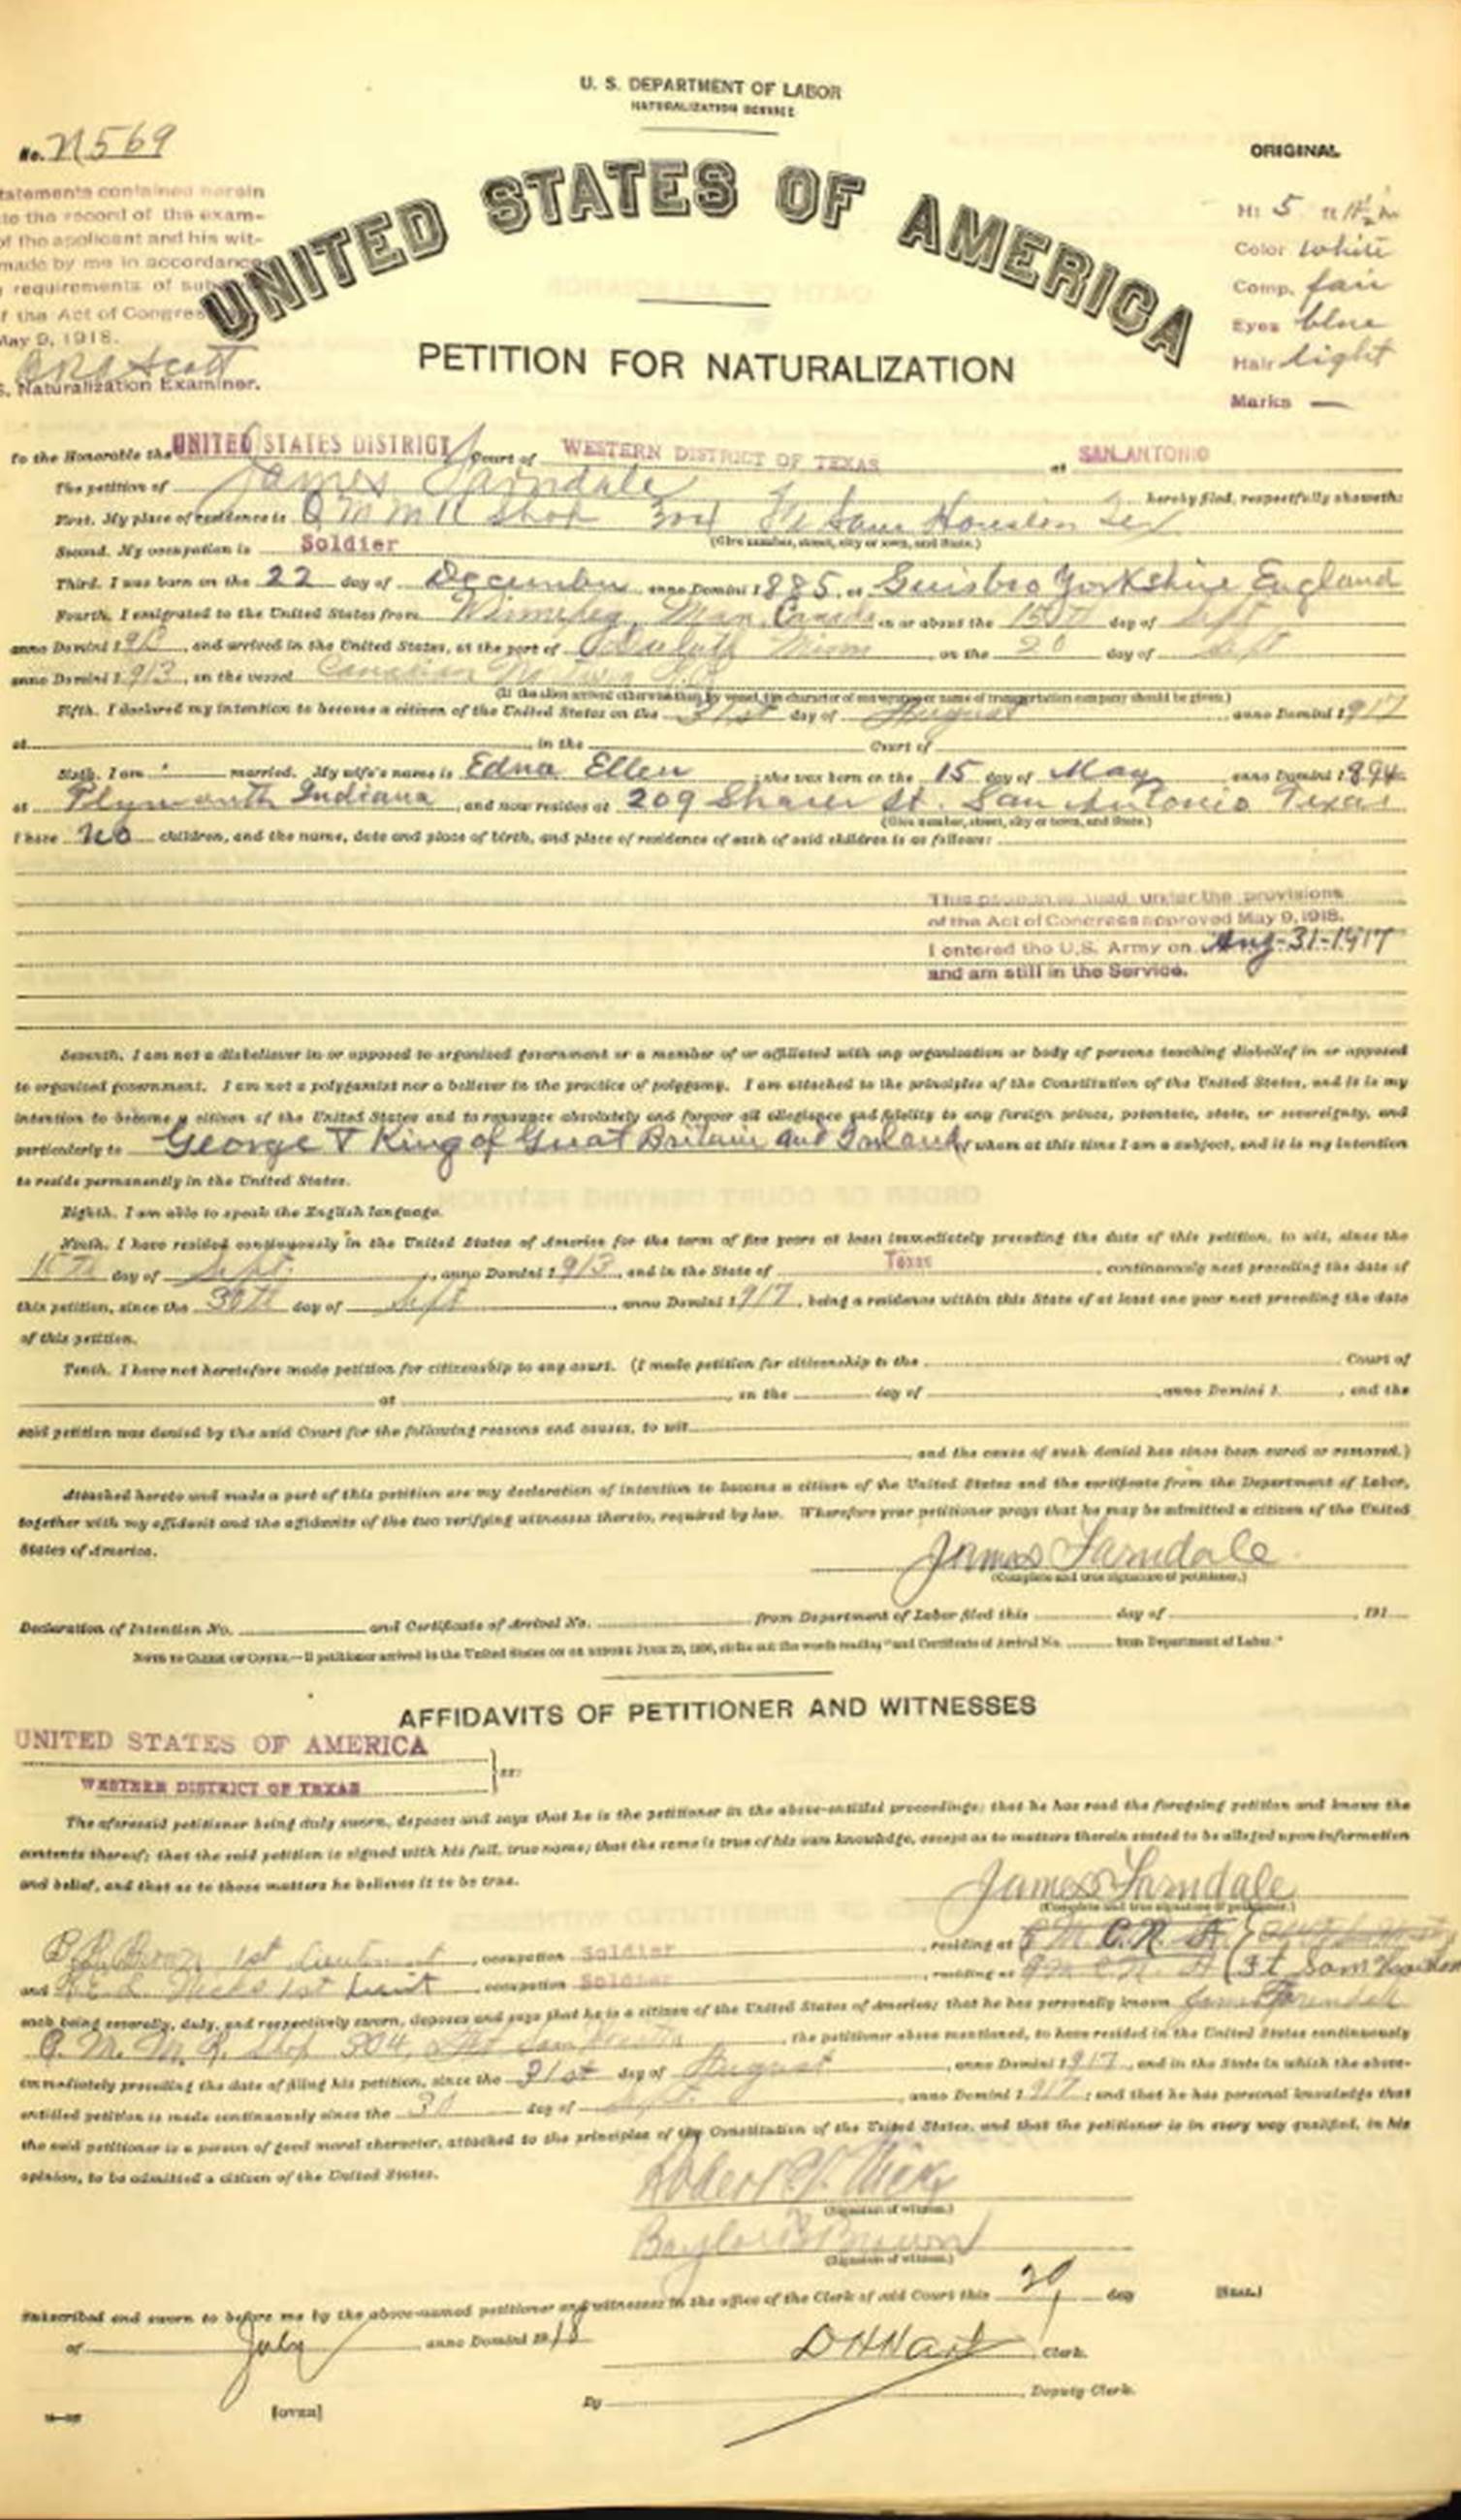 U. S. DEPARTMENT OF LABOR
NATURALIZATION SERVICE
No. N569
ORIGINAL
UNITED STATES OF AMERICA
tatements contained herein
te the record of the exam-
of the applicant and his wit-
made by me in accordance
requirements of sub
f the Act of Congres
May 9, 1918.
Scott
S. Naturalization Examiner.
Ht 5 ft 11½ in
Color white
Comp. fair
Eyes blue
Hair light
Marks —
PETITION FOR NATURALIZATION
To the Honorable the UNITED STATES DISTRICT Court of WESTERN DISTRICT OF TEXAS at SAN ANTONIO
The petition of James Farndale hereby filed, respectfully showeth:
First. My place of residence is Q M M R Shop 304 Ft Sam Houston Tex
(Give number, street, city or town, and State.)
Second. My occupation is Soldier
Third. I was born on the 22 day of December anno Domini 1885, at Guisbro Yorkshire England
Fourth. I emigrated to the United States from Winnipeg, Man, Canada on or about the 15th day of Sept
anno Domini 1913, and arrived in the United States, at the port of Duluth Minn, on the 20 day of Sept
anno Domini 1913, on the vessel Canadian
(If the alien arrived otherwise than by vessel, the character of conveyance or name of transportation company should be given.)
Fifth. I declared my intention to become a citizen of the United States on the 31st day of August, anno Domini 1917
at in the Court of
Sixth. I am married. My wife's name is Edna Ellen; she was born on the 15 day of May, anno Domini 1894
at Plymouth Indiana, and now resides at 209 Sharer St. San Antonio Texas
(Give number, street, city or town, and State.)
I have no children, and the name, date and place of birth, and place of residence of each of said children is as follows:
This petition is filed under the provisions
of the Act of Congress approved May 9, 1918.
I entered the U.S. Army on Aug-31-1917
and am still in the Service.
Seventh. I am not a disbeliever in or opposed to organized government or a member of or affiliated with any organization or body of persons teaching disbelief in or opposed
to organized government. I am not a polygamist nor a believer in the practice of polygamy. I am attached to the principles of the Constitution of the United States, and it is my
intention to become a citizen of the United States and to renounce absolutely and forever all allegiance and fidelity to any foreign prince, potentate, state, or sovereignty, and
particularly to George V King of Great Britain and Ireland, of whom at this time I am a subject, and it is my intention
to reside permanently in the United States.
Eighth. I am able to speak the English language.
Ninth. I have resided continuously in the United States of America for the term of five years at least immediately preceding the date of this petition, to wit, since the
15th day of Sept., anno Domini 1913, and in the State of Texas, continuously next preceding the date of
this petition, since the 30th day of Sept, anno Domini 1917, being a residence within this State of at least one year next preceding the date
of this petition.
Tenth. I have not heretofore made petition for citizenship to any court. (I made petition for citizenship to the Court of
at, on the day of, anno Domini 1, and the
said petition was denied by the said Court for the following reasons and causes, to wit
, and the cause of such denial has since been cured or removed.)
Attached hereto and made a part of this petition are my declaration of intention to become a citizen of the United States and the certificate from the Department of Labor,
together with my affidavit and the affidavits of the two verifying witnesses thereto, required by law. Wherefore your petitioner prays that he may be admitted a citizen of the United
States of America.
James Farndale
(Complete and true signature of petitioner.)
Declaration of Intention No. and Certificate of Arrival No. from Department of Labor filed this day of, 191
NOTE TO CLERK OF COURT.—If petitioner arrived in the United States ON OR BEFORE JUNE 29, 1906, strike out the words reading "and Certificate of Arrival No. from Department of Labor."
AFFIDAVITS OF PETITIONER AND WITNESSES
UNITED STATES OF AMERICA
WESTERN DISTRICT OF TEXAS ss:
The aforesaid petitioner being duly sworn, deposes and says that he is the petitioner in the above-entitled proceedings; that he has read the foregoing petition and knows the
contents thereof; that the said petition is signed with his full, true name; that the same is true of his own knowledge, except as to matters therein stated to be alleged upon information
and belief, and that as to those matters he believes it to be true.
James Farndale
(Complete and true signature of petitioner.)
B. B. Brown 1st Lieutenant, occupation Soldier, residing at
and Hicks 1st Lieut, occupation Soldier, residing at (Ft Sam Houston
each being severally, duly, and respectively sworn, deposes and says that he is a citizen of the United States of America; that he has personally known James Farndale
Q. M. M. R. Shop 304, Fort Sam Houston, the petitioner above mentioned, to have resided in the United States continuously
immediately preceding the date of filing his petition, since the 31st day of August, anno Domini 1917, and in the State in which the above-
entitled petition is made continuously since the 30 day of Sept., anno Domini 1917; and that he has personal knowledge that
the said petitioner is a person of good moral character, attached to the principles of the Constitution of the United States, and that the petitioner is in every way qualified, in his
opinion, to be admitted a citizen of the United States.
Robert Hicks
(Signature of witness.)
Baylor B Brown
(Signature of witness.)
Subscribed and sworn to before me by the above-named petitioner and witnesses in the office of the Clerk of said Court this 29 day [SEAL.]
of July, anno Domini 1918
D H Hart, Clerk.
[OVER]
By, Deputy Clerk.